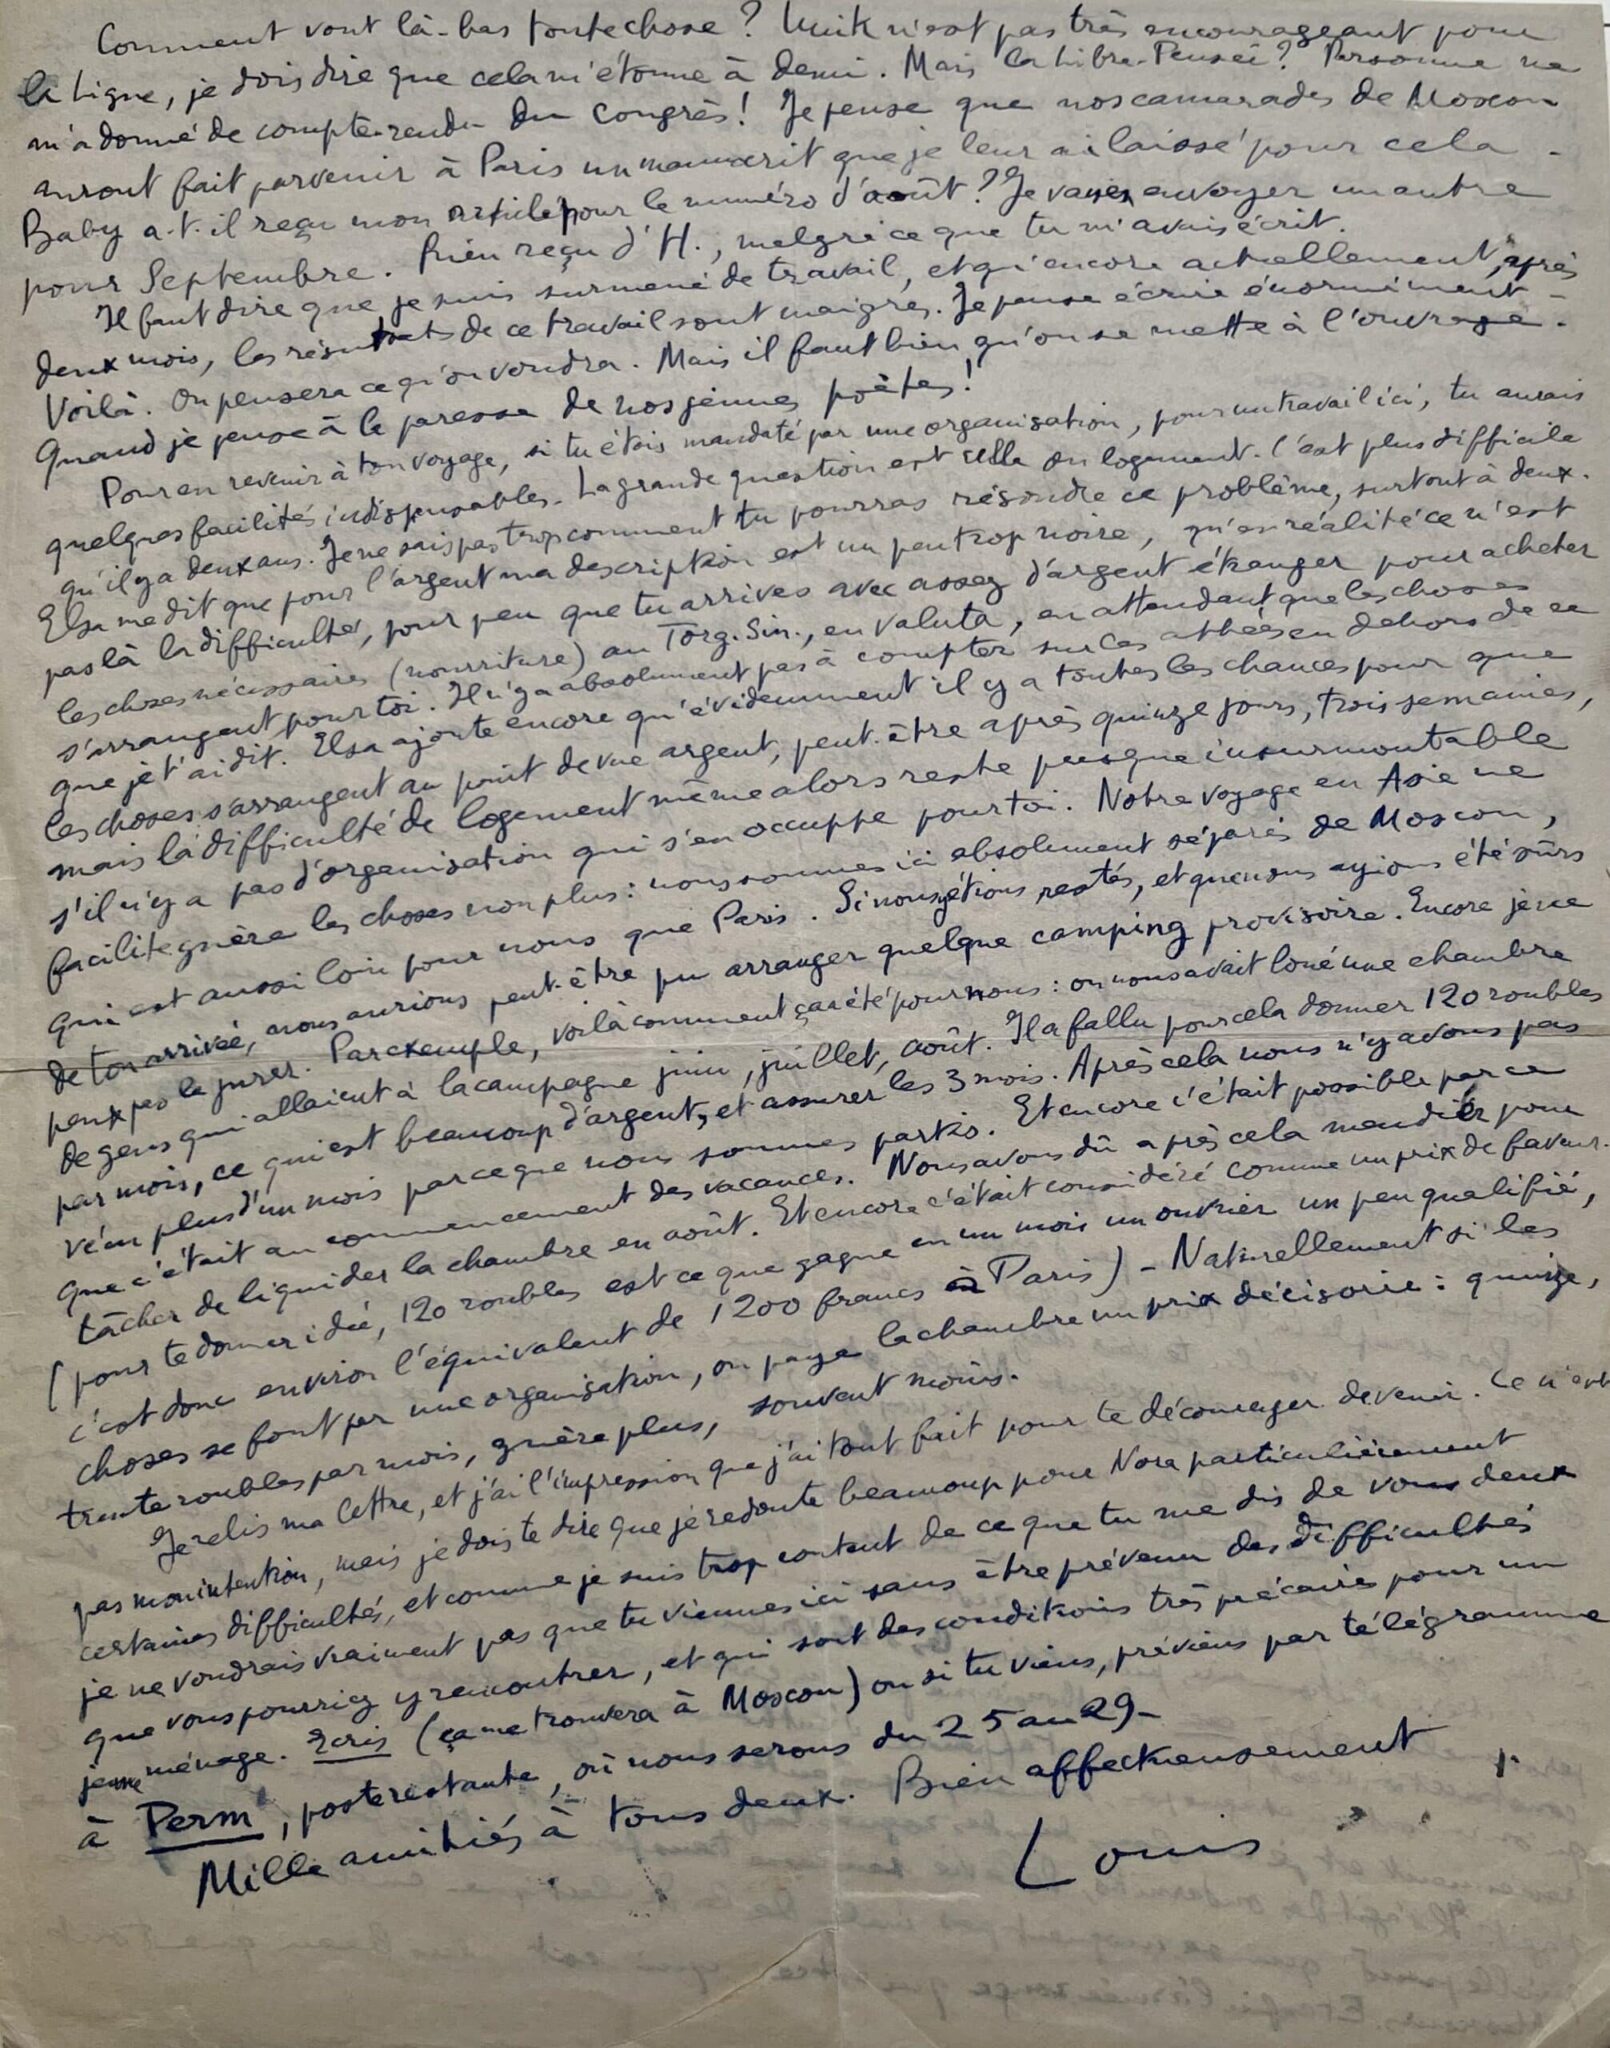 Comment vont là-bas toute chose ? Unik n'est pas très encourageant pour
la Ligne, je dois dire que cela m'étonne à demi. Mais la Libre-Pensée ? Personne ne
m'a donné de compte-rendu du Congrès ! Je pense que nos camarades de Moscou
auront fait parvenir à Paris un manuscrit que je leur ai laissé pour cela -
Baby a-t-il reçu mon article pour le numéro d'août ? Je vais en envoyer un autre
pour Septembre. Rien reçu d'H., malgré ce que tu m'avais écrit.
Il faut dire que je suis surmené de travail, et qu'encore actuellement, après
deux mois, les résultats de ce travail sont maigres. Je pense écrire énormément -
Voilà. On pensera ce qu'on voudra. Mais il faut bien qu'on se mette à l'ouvrage -
Quand je pense à la paresse de nos jeunes poètes !
Pour en revenir à ton voyage, si tu étais mandaté par une organisation, pour un travail ici, tu aurais
quelques facilités indispensables. La grande question est celle du logement. C'est plus difficile
qu'il y a deux ans. Je ne sais pas trop comment tu pourras résoudre ce problème, surtout à deux.
Elsa me dit que pour l'argent ma description est un peu trop noire, qu'en réalité ce n'est
pas là la difficulté, pour peu que tu arrives avec assez d'argent étranger pour acheter
les choses nécessaires (nourriture) au Torg. Sin., en valuta, en attendant que les choses
s'arrangent pour toi. Il n'y a absolument pas à compter sur les athées en dehors de ce
que je t'ai dit. Elsa ajoute encore qu'évidemment il y a toutes les chances pour que
les choses s'arrangent au point de vue argent, peut-être après quinze jours, trois semaines,
mais la difficulté de logement même alors reste presque insurmontable
s'il n'y a pas d'organisation qui s'en occuppe pour toi. Notre voyage en Asie ne
facilite guère les choses non plus : nous sommes ici absolument séparés de Moscou,
qui est aussi loin pour nous que Paris. Si nous y étions restés, et que nous ayions été sûrs
de ton arrivée, nous aurions peut-être pu arranger quelque camping provisoire. Encore je ne
peux pas le jurer. Par exemple, voilà comment ça a été pour nous : on nous avait loué une chambre
de gens qui allaient à la campagne juin, juillet, août. Il a fallu pour cela donner 120 roubles
par mois, ce qui est beaucoup d'argent, et assurer les 3 mois. Après cela nous n'y avons pas
vécu plus d'un mois parce que nous sommes partis. Et encore c'était possible parce
que c'était au commencement des vacances. Nous avons dû après cela mendier pour
tâcher de liquider la chambre en août. Et encore c'était considéré comme un prix de faveur.
(pour te donner idée, 120 roubles est ce que gagne en un mois un ouvrier un peu qualifié,
c'est donc environ l'équivalent de 1200 francs à Paris) - Naturellement si les
choses se font par une organisation, on paye la chambre un prix dérisoire : quinze,
trente roubles par mois, guère plus, souvent moins.
Je relis ma lettre, et j'ai l'impression que j'ai tout fait pour te décourager de venir. Ce n'est
pas mon intention, mais je dois te dire que je redoute beaucoup pour Nora particulièrement
certaines difficultés, et comme je suis trop content de ce que tu me dis de vous deux
je ne voudrais vraiment pas que tu viennes ici sans être prévenu des difficultés
que vous pourriez y rencontrer, et qui sont des conditions très précaires pour un
jeune ménage. Ecris (ça me trouvera à Moscou) ou si tu viens, préviens par télégramme
à Perm, poste restante, où nous serons du 25 au 29 -
Mille amitiés à tous deux. Bien affectueusement
Louis